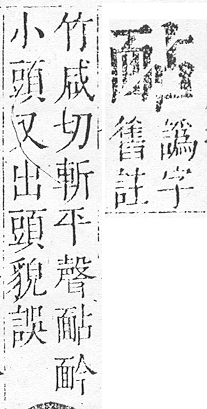 譌字
舊註
竹咸切斬平聲
小頭又出頭貌誤